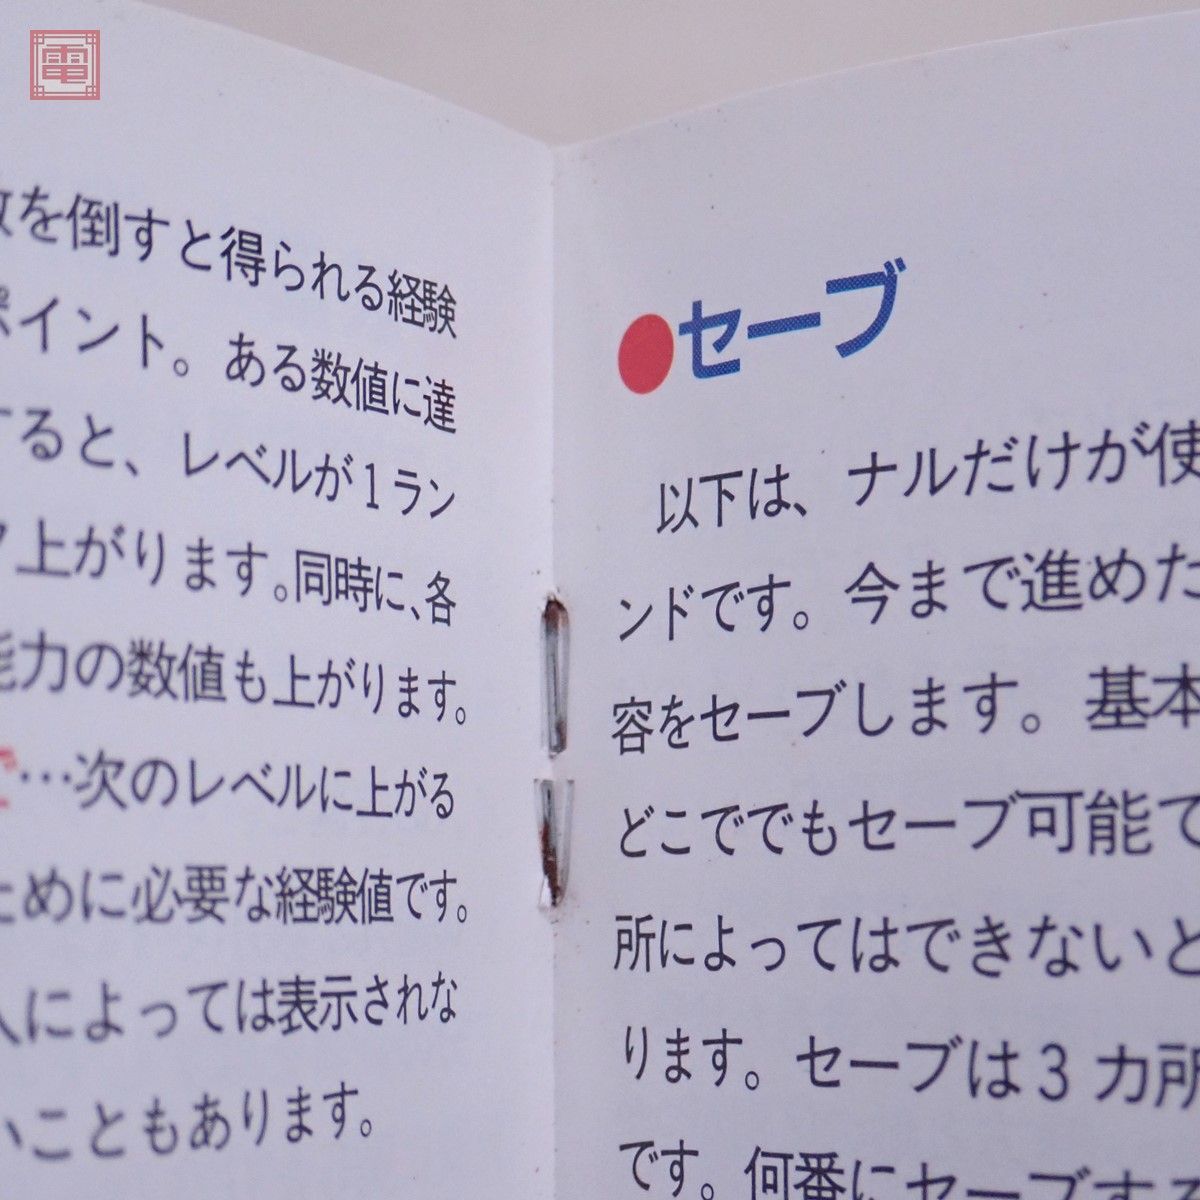 電
敵を倒すと得られる経験
ポイント。ある数値に達
すると、レベルが1ラン
ク上がります。同時に、各
能力の数値も上がります。
…次のレベルに上がる
ために必要な経験値です。
人によっては表示されな
いこともあります。
●セーブ
以下は、ナルだけが使
ンドです。今まで進めた
容をセーブします。基本
どこででもセーブ可能で
所によってはできないと
ります。セーブは3カ所
です。何番にセーブする